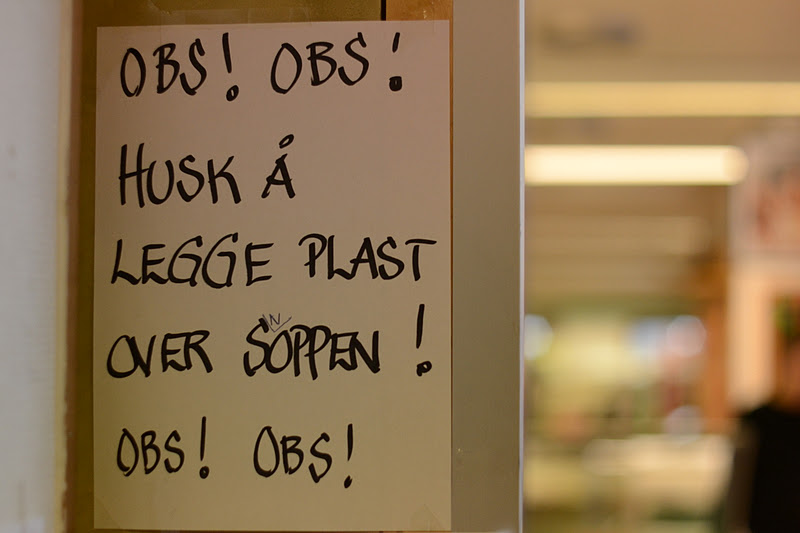 OBS! OBS!
HUSK Å
LEGGE PLAST
OVER SOPPEN!
OBS! OBS!